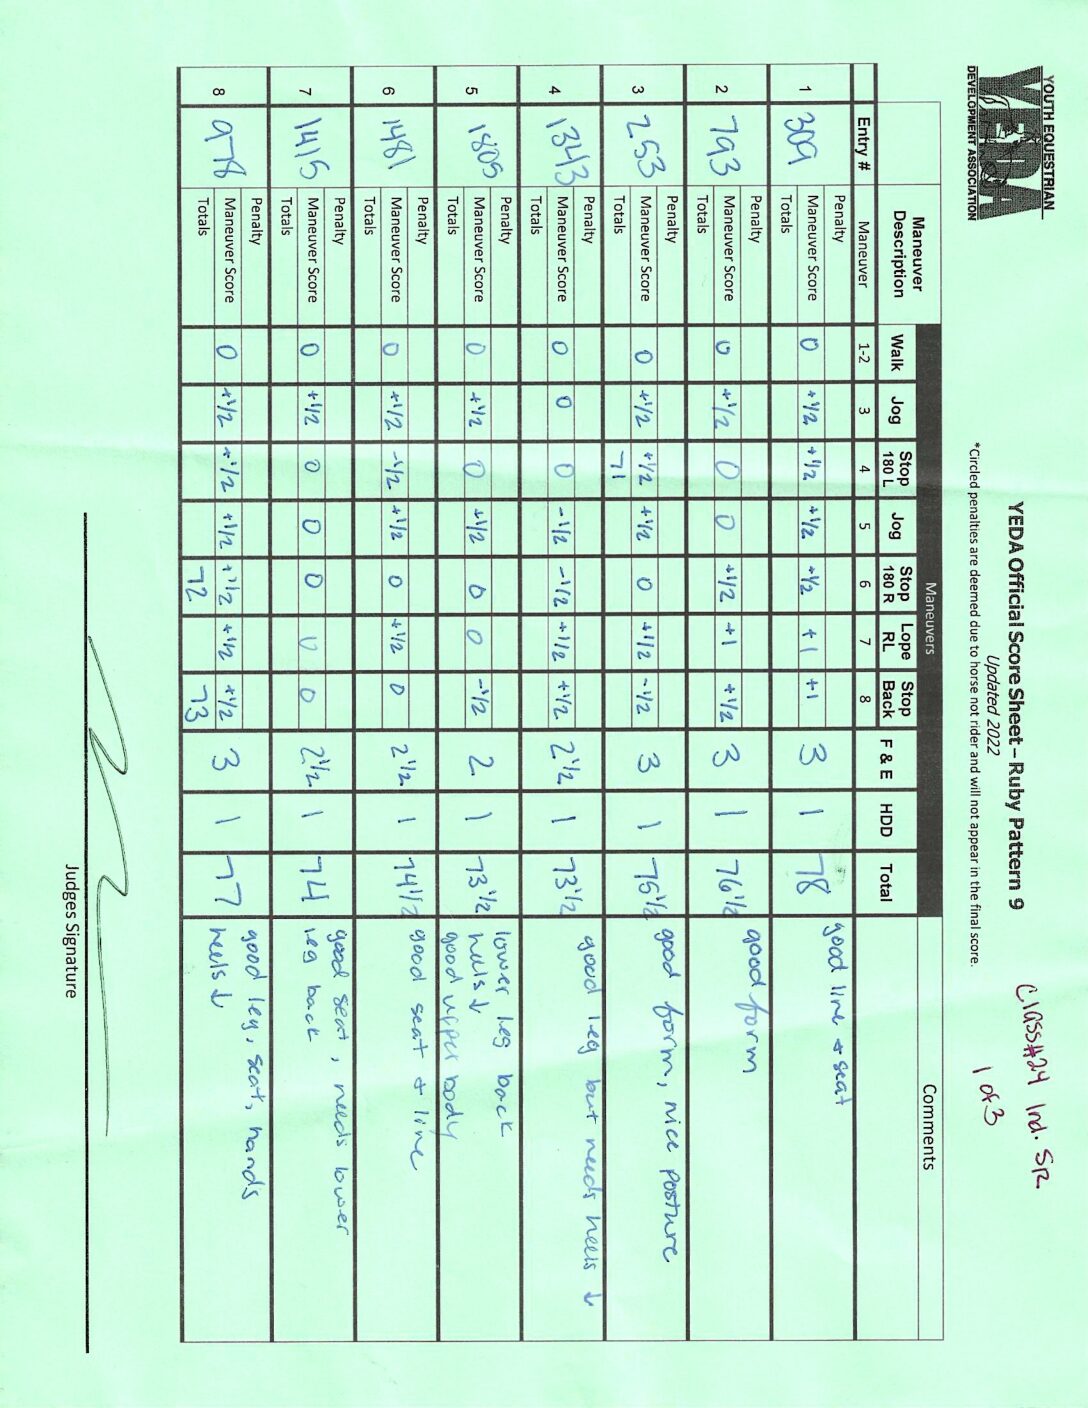 YOUTH EQUESTRIAN
YEDA
DEVELOPMENT ASSOCIATION
YEDA Official Score Sheet – Ruby Pattern 9
Updated 2022
*Circled penalties are deemed due to horse not rider and will not appear in the final score.
Class#24 Ind. SR.
1 of 3
Maneuvers
Maneuver Description Walk Jog Stop 180 L Jog Stop 180 R Lope RL Stop Back F & E HDD Total Comments
Entry # Maneuver 1-2 3 4 5 6 7 8
1 309 Penalty
Maneuver Score 0 +1/2 +1/2 +1/2 +1/2 +1 +1 3 1 78 good line + seat
Totals
2 793 Penalty
Maneuver Score 0 +1/2 0 0 +1/2 +1 +1/2 3 1 76 1/2 good form
Totals
3 253 Penalty
Maneuver Score 0 +1/2 +1/2 +1/2 0 +1/2 -1/2 3 1 75 1/2 good form, nice posture
Totals 71
4 1343 Penalty
Maneuver Score 0 0 0 -1/2 -1/2 +1/2 +1/2 2 1/2 1 73 1/2 good leg but needs heels ↓
Totals
5 1805 Penalty lower leg back
Maneuver Score 0 +1/2 0 +1/2 0 0 -1/2 2 1 73 1/2 heels ↓
Totals good upper body
6 1481 Penalty
Maneuver Score 0 +1/2 -1/2 +1/2 0 +1/2 0 2 1/2 1 74 1/2 good seat + line
Totals
7 1415 Penalty good seat, needs lower
Maneuver Score 0 +1/2 0 0 0 0 0 2 1/2 1 74 leg back
Totals
8 978 Penalty good leg, seat, hands
Maneuver Score 0 +1/2 +1/2 +1/2 +1/2 +1/2 +1/2 3 1 77 heels ↓
Totals 72 73
Judges Signature